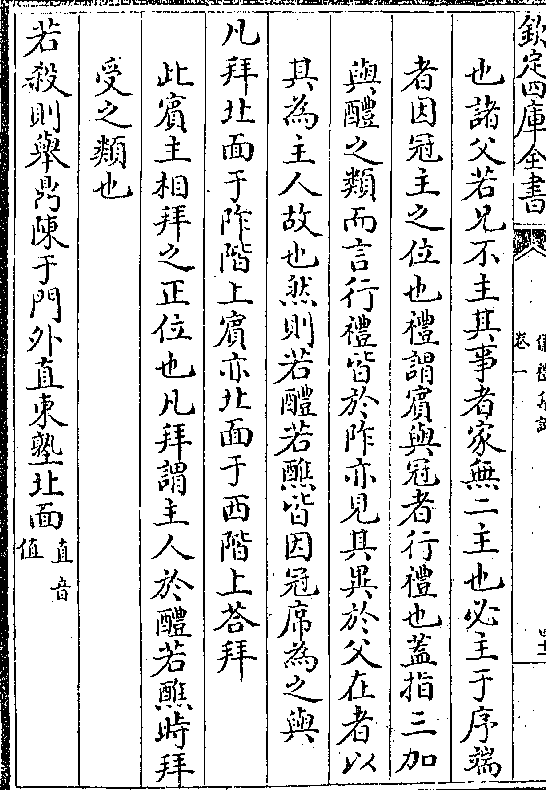 欽定四庫全書
卷一
也諸父若兄不主其事者家無二主也必主于序端
者因冠主之位也禮謂賓與冠者行禮也蓋指三加
與醴之類而言行禮皆於阼亦見其異於父在者以
其為主人故也然則若醴若醮皆因冠席為之與
凡拜北面于阼階上賓亦北面于西階上荅拜
此賓主相拜之正位也凡拜謂主人於醴若醮時拜
受之類也
若殺則舉鼎陳于門外直東塾北面直音值